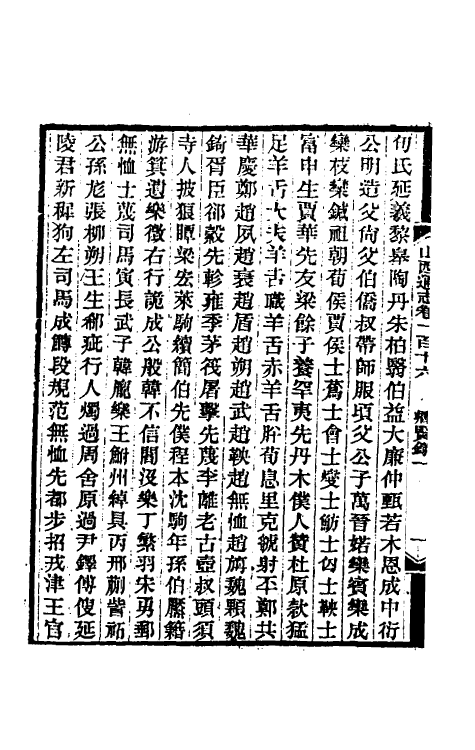 旬氏延義黎皋陶丹朱柏翳伯益大廉仲甄若木恩成中衍
公明造父尙父伯僑叔帶師服頃父公子萬晉婼欒賓欒成
欒枝欒鍼祖朝荀侯賈侯士蒍士會士燮士魴士匃士鞅士
富申生賈華先友梁餘子養罕夷先丹木僕人贊杜原款猛
足羊舌大夫羊舌職羊舌赤羊舌肸荀息里克虢射丕鄭共
華慶鄭趙夙趙衰趙盾趙朔趙武趙鞅趙無恤趙旃魏顆魏
錡胥臣郤縠先軫雍季茅筏屠擊先蔑李離老古壺叔頭須
寺人披狼瞫梁宏萊駒續簡伯先僕程本沈駒年孫伯黶籍
游箕遺欒徵右行詭成公般韓不信閻沒樂丁繁羽宋勇郵
無恤士蔑司馬寅長武子韓龐樂王鮒州綽具丙邢蒯訾祏
公孫尨張柳朔王生郗疵行人燭過周舍原過尹鐸傅傁延
陵君新穉狗左司馬成鱄段規范無恤先都步招戎津王官
山西通志卷一百十六
鄉賢錄一
一